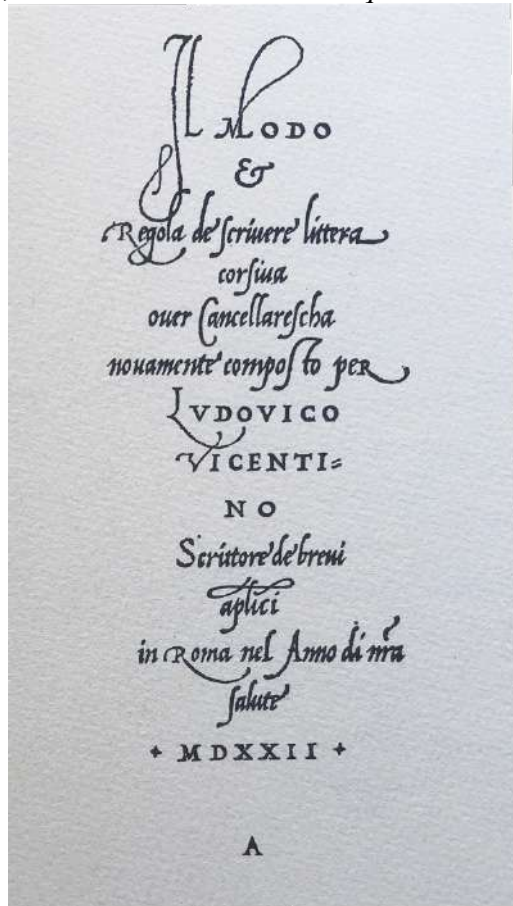 Il Modo
&
Regola de scriuere littera
corsiua
ouer Cancellarescha
nouamente composto per
LVDOVICO
VICENTI=
NO
Scrittore de breui
aplici
in Roma nel Anno di nr̃a
salute
+ MDXXII +
A